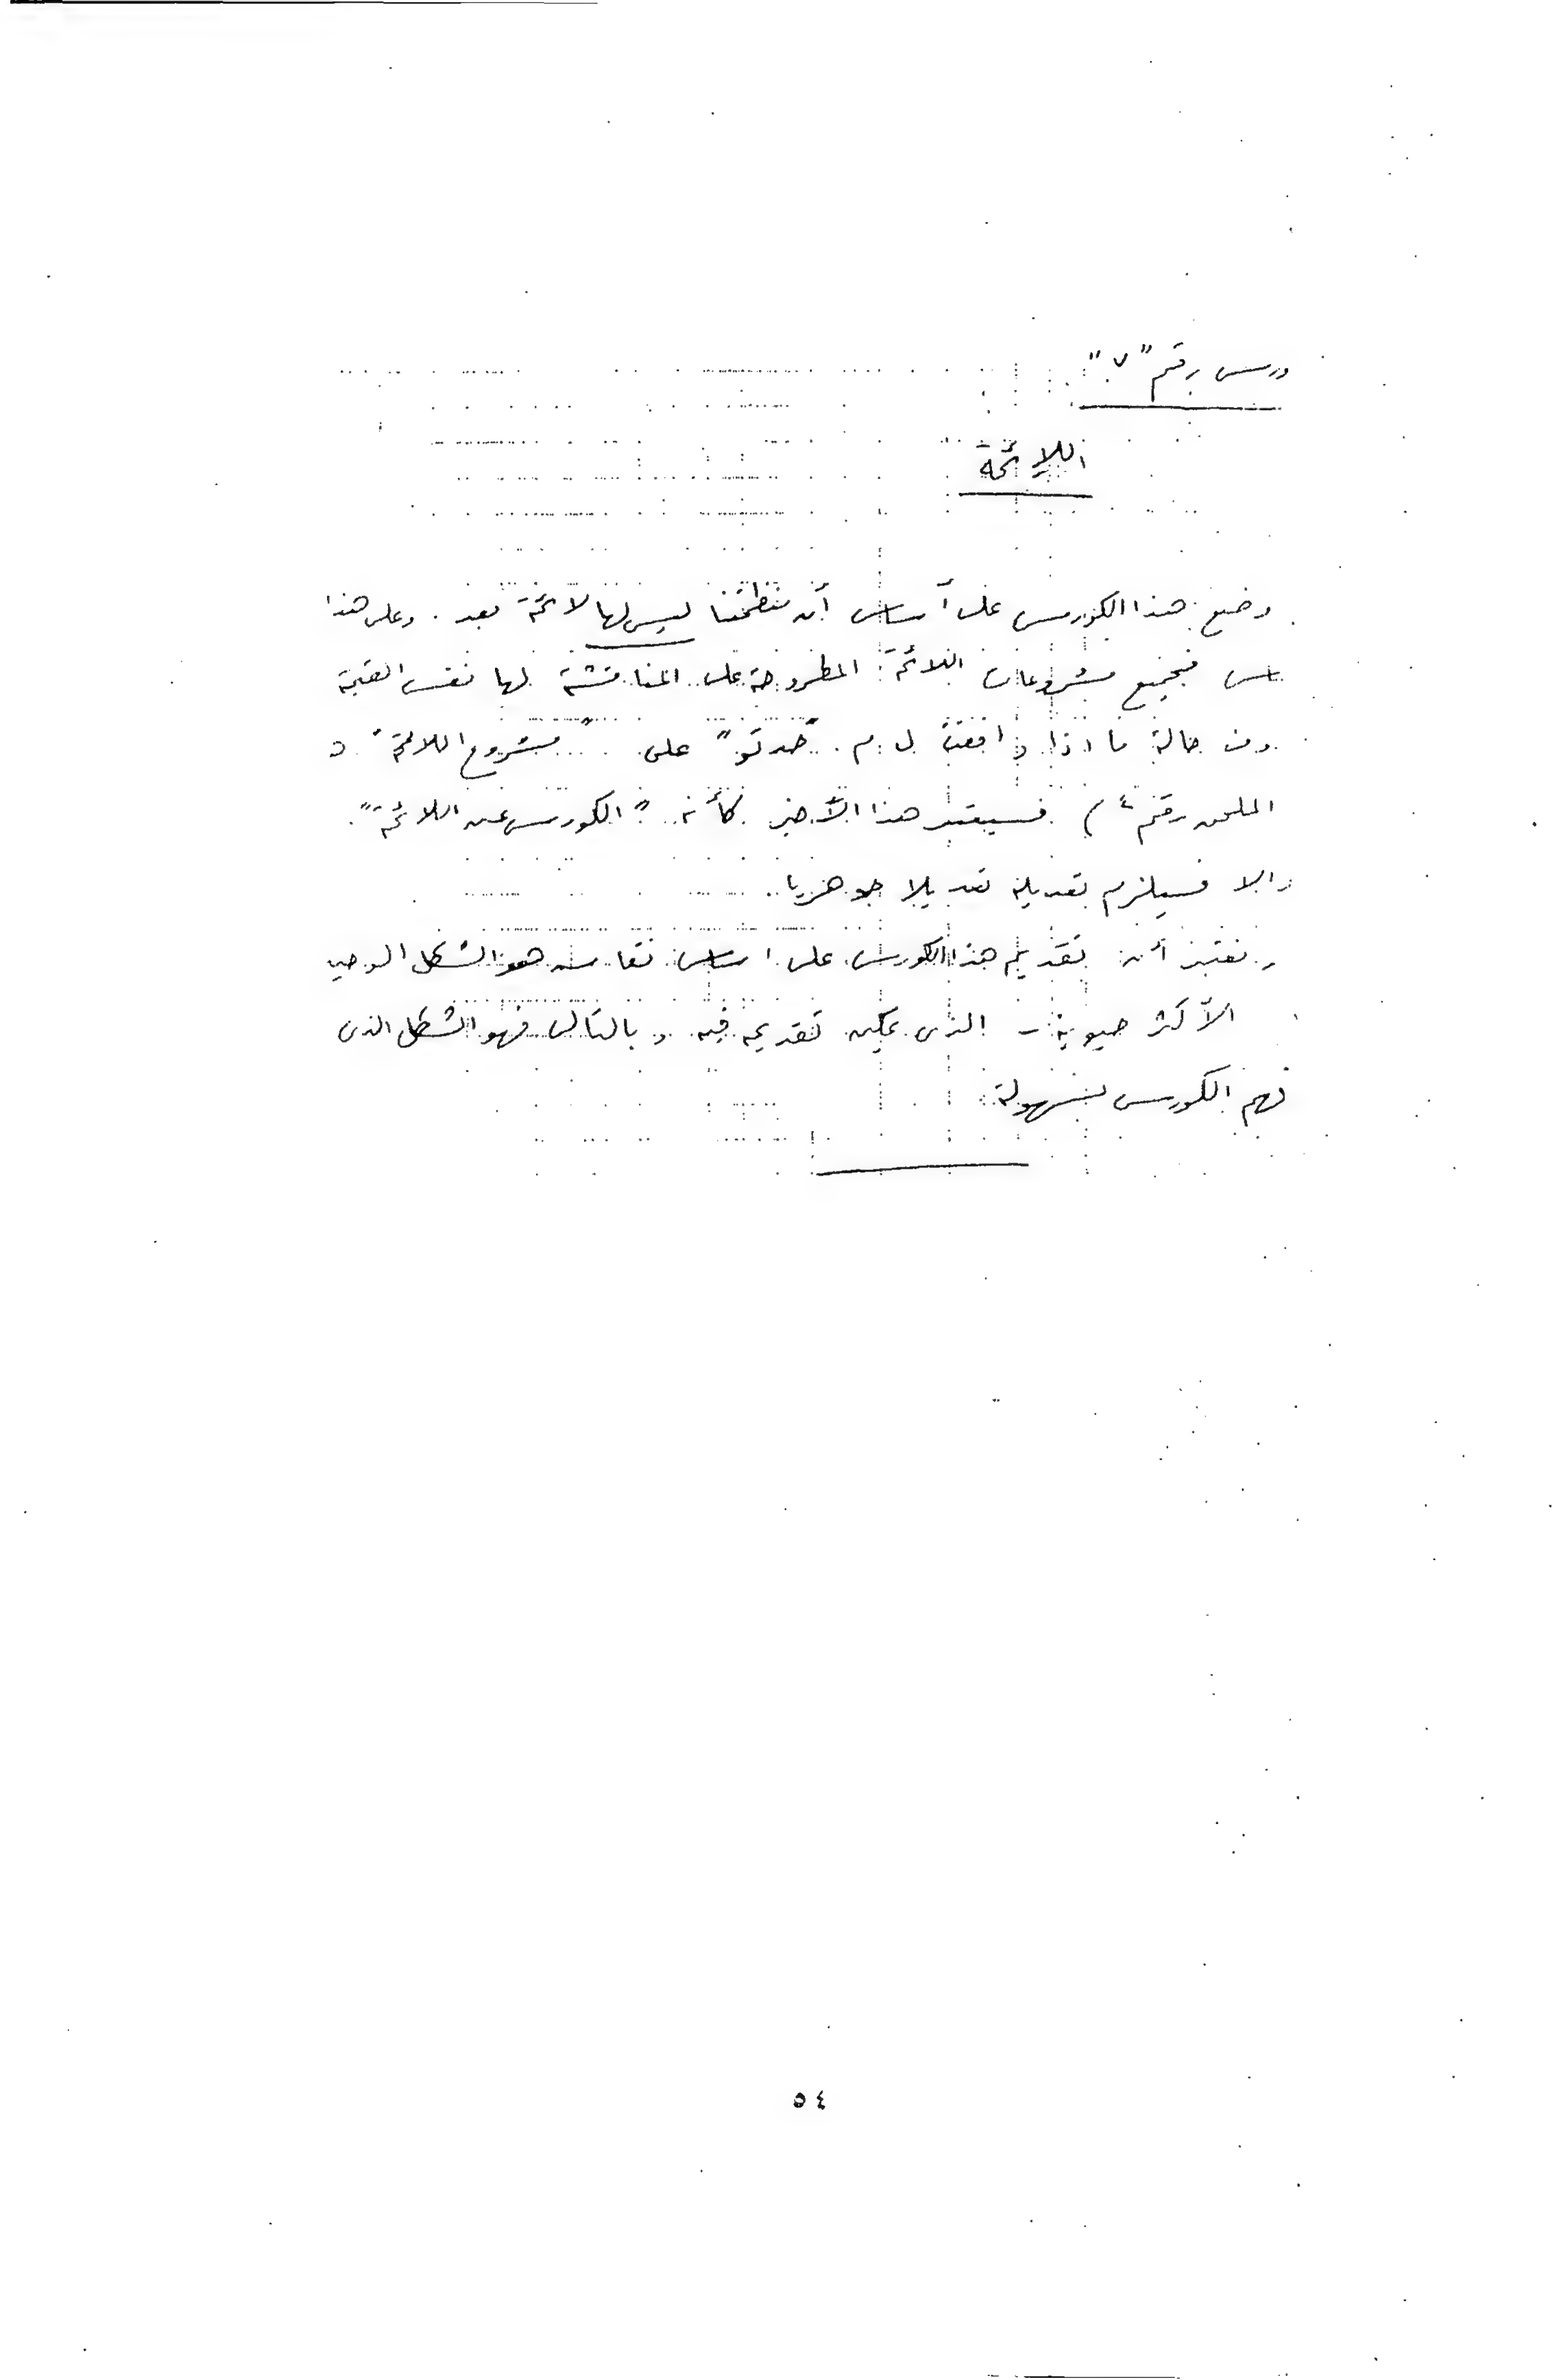 درس رقم "٧"
اللائحة
وضع هذا الكورس على أساس أن منظمتنا ليس لها لائحة بعد . وعلى هذا
ساس فجميع مشروعات اللائحة المطروحة على المناقشة لها نفس القيمة
وفى حالة ما اذا وافقت ل . م . "حدتو" على "مشروع اللائحة" (
الملحق رقم ٤ ) فسيعتبر هذا الأخير كأنه "الكورس عن اللائحة" .
والا فسيلزم تعديله تعديلا جوهريا .
ونعتبر أن تقديم هذا الكورس على اساس نقاش هو الشكل الوحيد
الأكثر حيوية - الذى يمكن تقديمه فيه وبالتالى فهو الشكل الذى
فهم الكورس بسهولة
٥٤